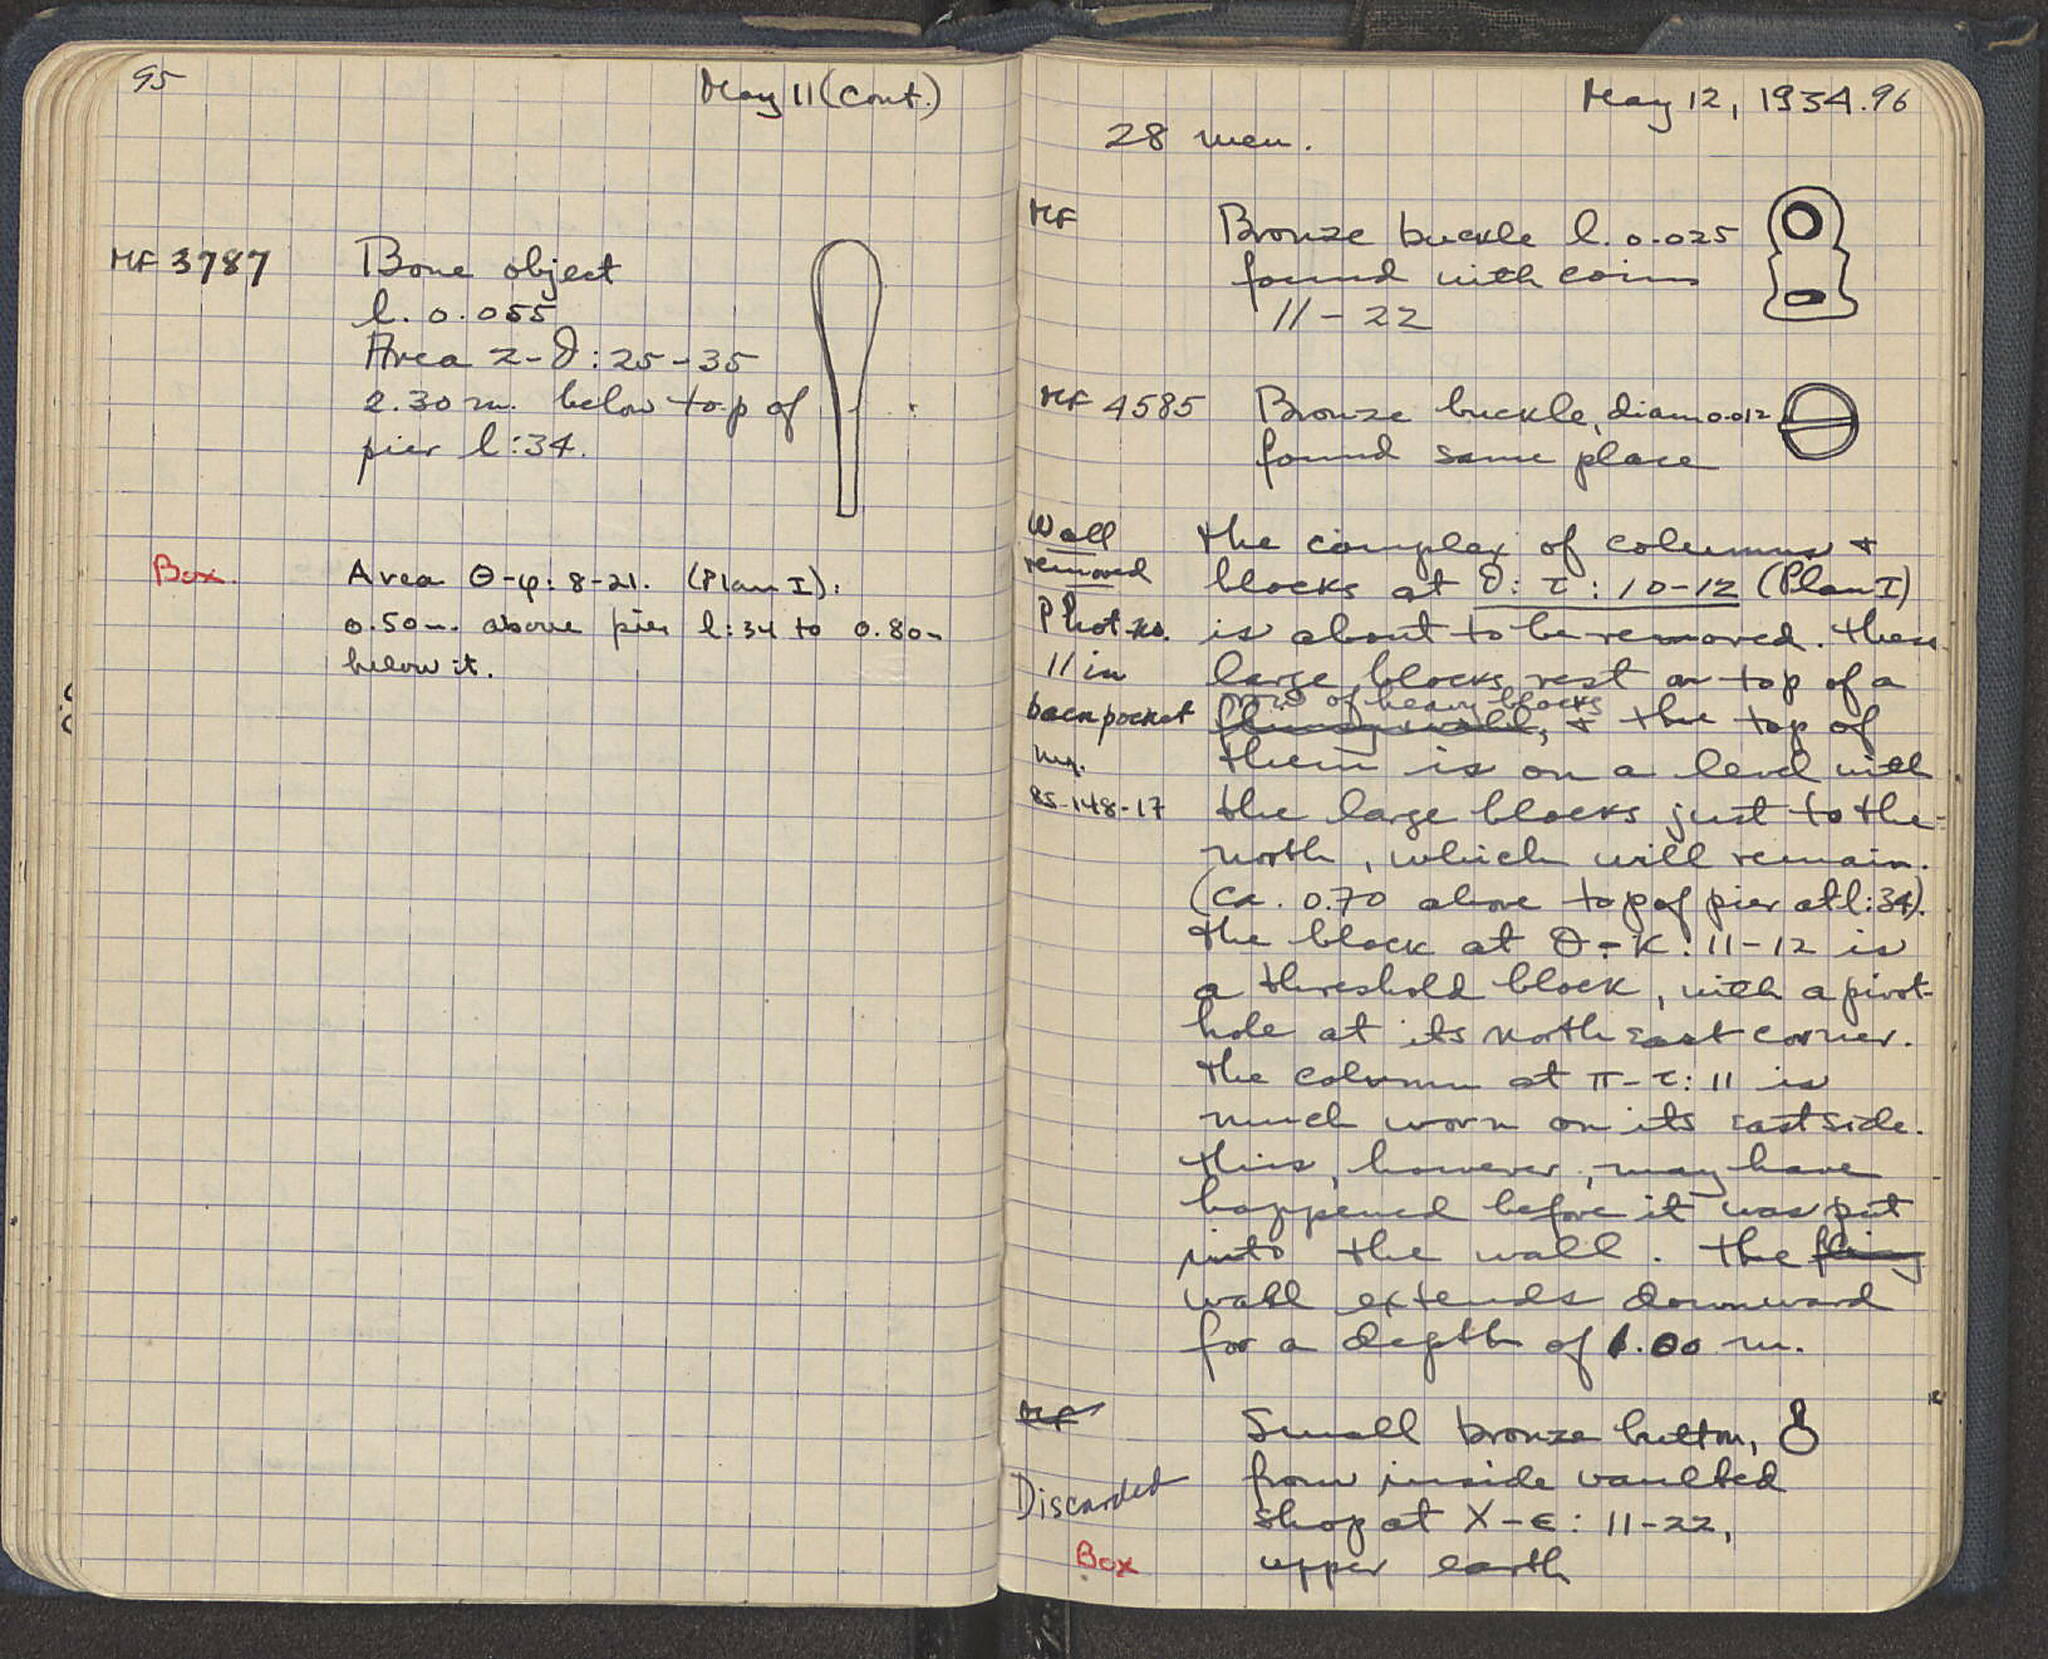 95
May 11 (cont.)
MF 3787
Bone object
l. 0.055
Area Z-θ: 25-35
2.30 m. below top of
pier l:34.
Box.
Area Θ-φ: 8-21. (Plan I):
0.50m. above pier l:34 to 0.80m
below it.
May 12, 1934. 96
28 men.
MF
Bronze buckle l. 0.025
found with coins
11-22
MF 4585
Bronze buckle, diam 0.012
found same place
Wall
removed
Phot no.
11 in
back pocket
neg.
85-148-17
The complex of columns +
blocks at θ: τ: 10-12 (Plan I)
is about to be removed. These
large blocks rest on top of a
row of heavy blocks
flimsy wall, + the top of
them is on a level with
the large blocks just to the
north, which will remain.
(ca. 0.70 above top of pier at l:34).
The block at Θ-K: 11-12 is
a threshold block, with a pivot-
hole at its north east corner.
The column at π-τ: 11 is
much worn on its east side.
This, however, may have
happened before it was put
into the wall. The flimsy
wall extends downward
for a depth of 1.00 m.
MF
Discarded
Box
Small bronze button,
from inside vaulted
shop at X-ε: 11-22,
upper earth